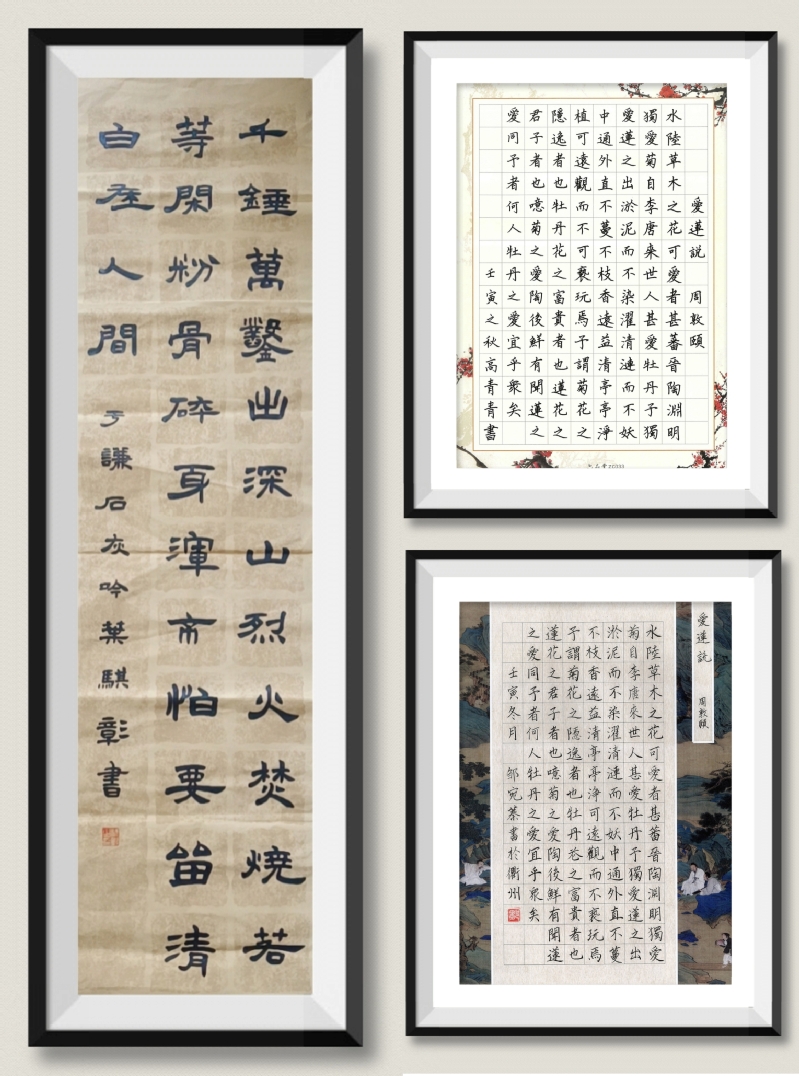 千錘萬鑿出深山烈火焚燒若
等閑粉骨碎身渾不怕要留清
白在人間 于謙石灰吟葉騏彰書
愛蓮説 周敦頤
水陸草木之花可愛者甚蕃晉陶淵明
獨愛菊自李唐来世人甚愛牡丹予獨
愛蓮之出淤泥而不染濯清漣而不妖
中通外直不蔓不枝香遠益清亭亭淨
植可遠觀而不可褻玩焉予謂菊花之
隱逸者也牡丹花之富貴者也蓮花之
君子者也噫菊之愛陶後鮮有聞蓮之
愛同予者何人牡丹之愛宜乎衆矣
壬寅之秋高青青書
愛蓮説 周敦頤
水陸草木之花可愛者甚蕃晉陶淵明獨愛
菊自李唐来世人甚愛牡丹予獨愛蓮之出
淤泥而不染濯清漣而不妖中通外直不蔓
不枝香遠益清亭亭淨可遠觀而不褻玩焉
予謂菊花之隱逸者也牡丹花之富貴者也
蓮花之君子者也噫菊之愛陶後鮮有聞蓮
之愛同予者何人牡丹之愛宜乎衆矣
壬寅冬月 邹宛書於衢州